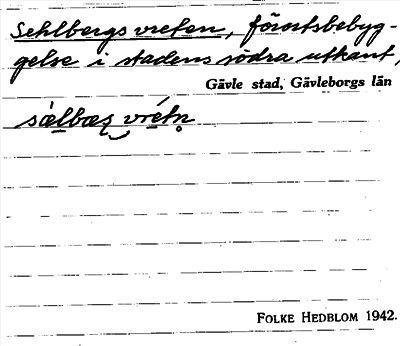 Sehlbergs vreten, förortsbebyg-
gelse i stadens södra utkant,
Gävle stad, Gävleborgs län
FOLKE HEDBLOM 1942.